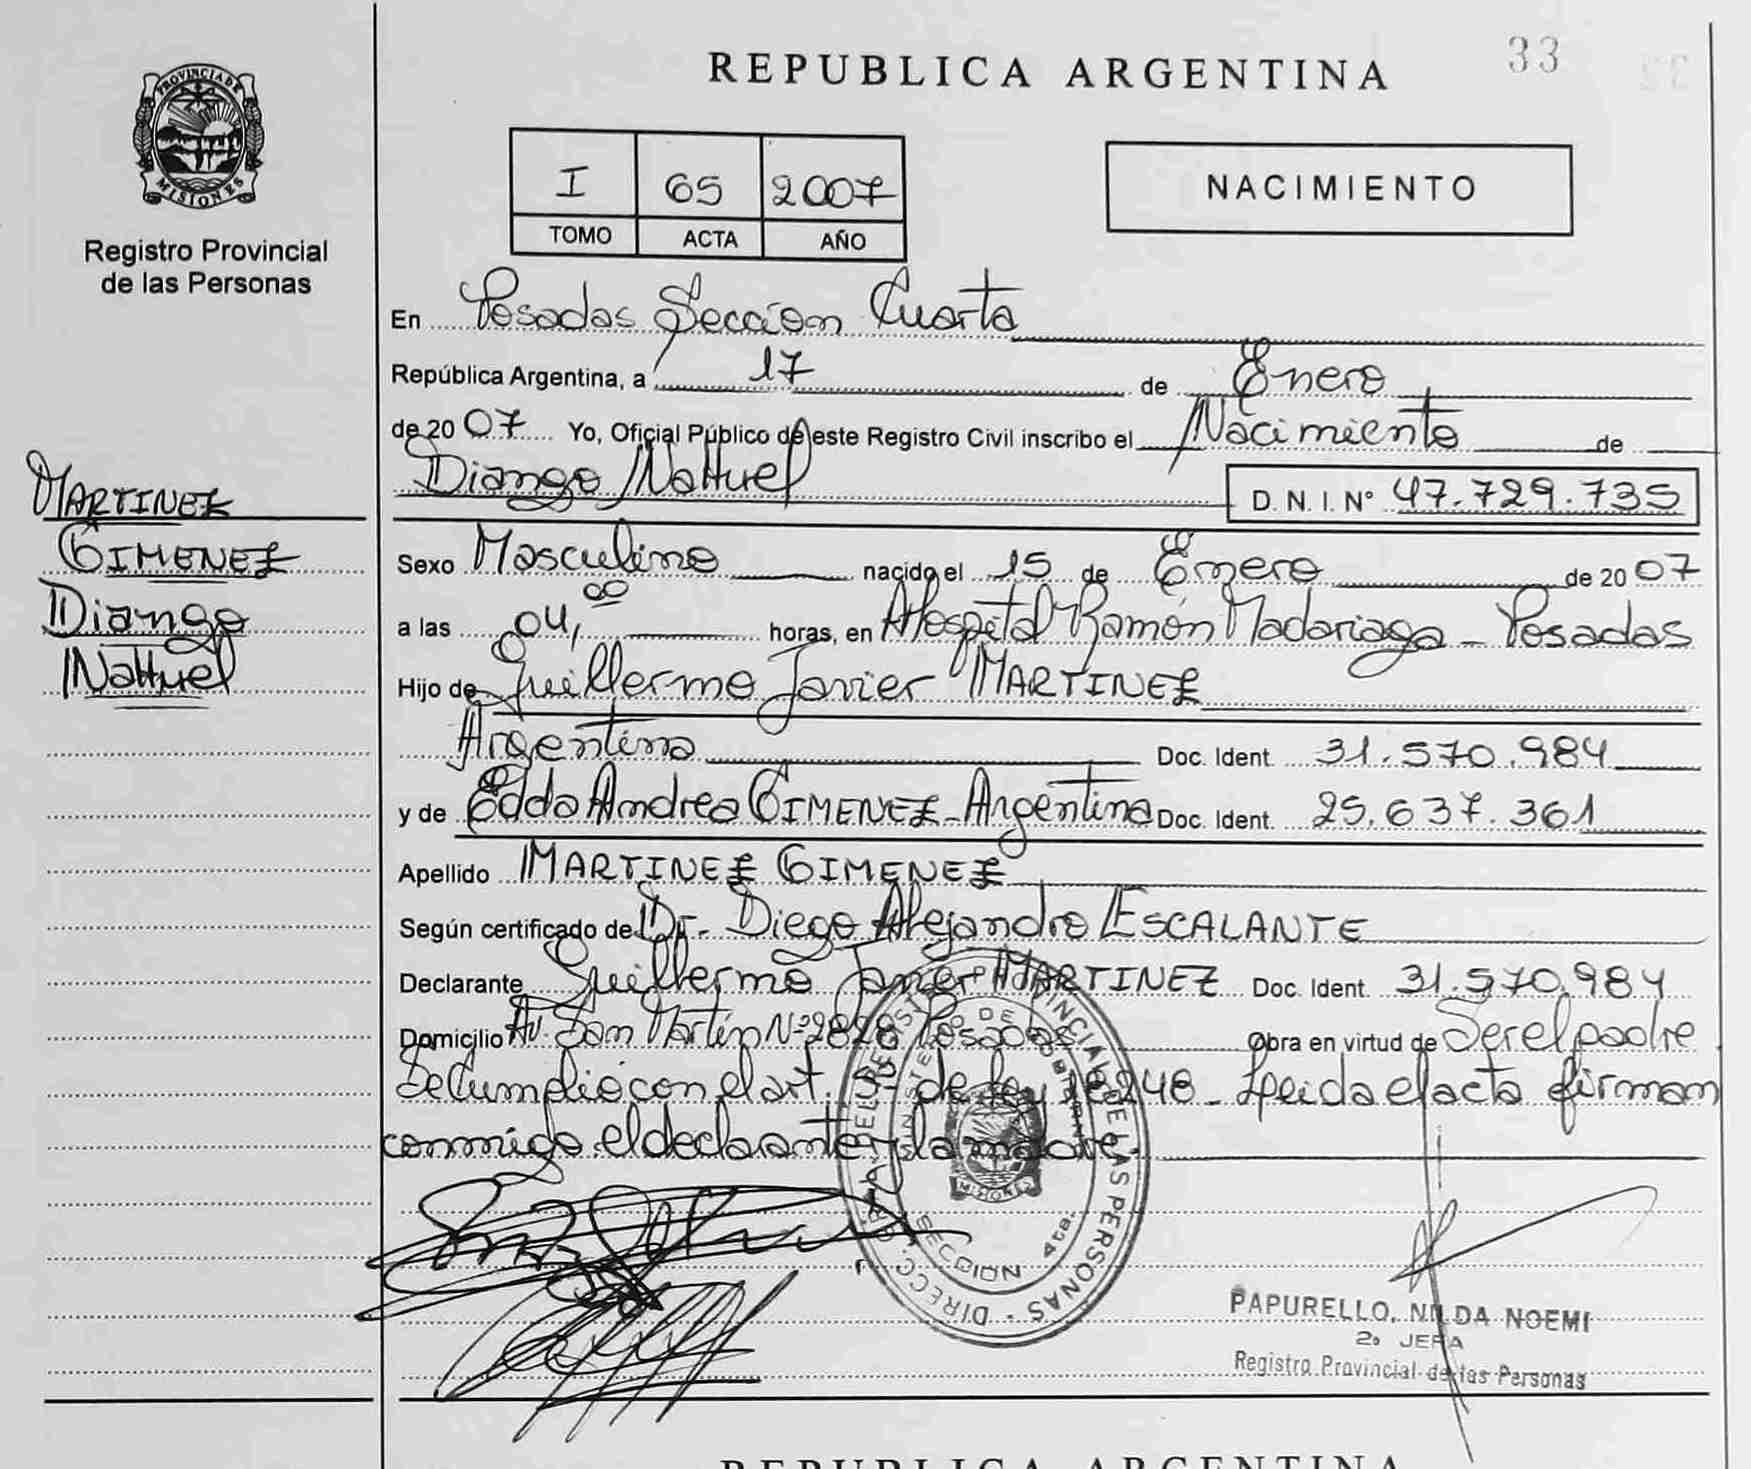 33
REPUBLICA ARGENTINA
PROVINCIA DE MISIONES
Registro Provincial
de las Personas
I 65 2007
TOMO ACTA AÑO
NACIMIENTO
En Posadas Sección Cuarta
República Argentina, a 17 de Enero
de 2007 Yo, Oficial Público de este Registro Civil inscribo el Nacimiento de
Diango Nahuel D. N. I. N° 47.729.735
MARTINEZ
GIMENEZ
Diango
Nahuel
Sexo Masculino nacido el 15 de Enero de 2007
a las 04,00 horas, en Hospital Ramón Madariaga - Posadas
Hijo de Guillermo Javier MARTINEZ
Argentina Doc. Ident. 31.570.984
y de Edda Andrea GIMENEZ - Argentina Doc. Ident. 25.637.361
Apellido MARTINEZ GIMENEZ
Según certificado de Dr. Diego Alejandro ESCALANTE
Declarante Guillermo Javier MARTINEZ Doc. Ident. 31.570.984
Domicilio Av. San Martín N° 2828 Posadas Obra en virtud de Ser el padre
Se Cumplió con el art. 5° de ley 18248 - Leida el acta firman
conmigo el declarante y la madre.
SECCION 4ta.
MISIONES
PAPURELLO, NILDA NOEMI
2a JEFA
Registro Provincial de las Personas
REPUBLICA ARGENTINA